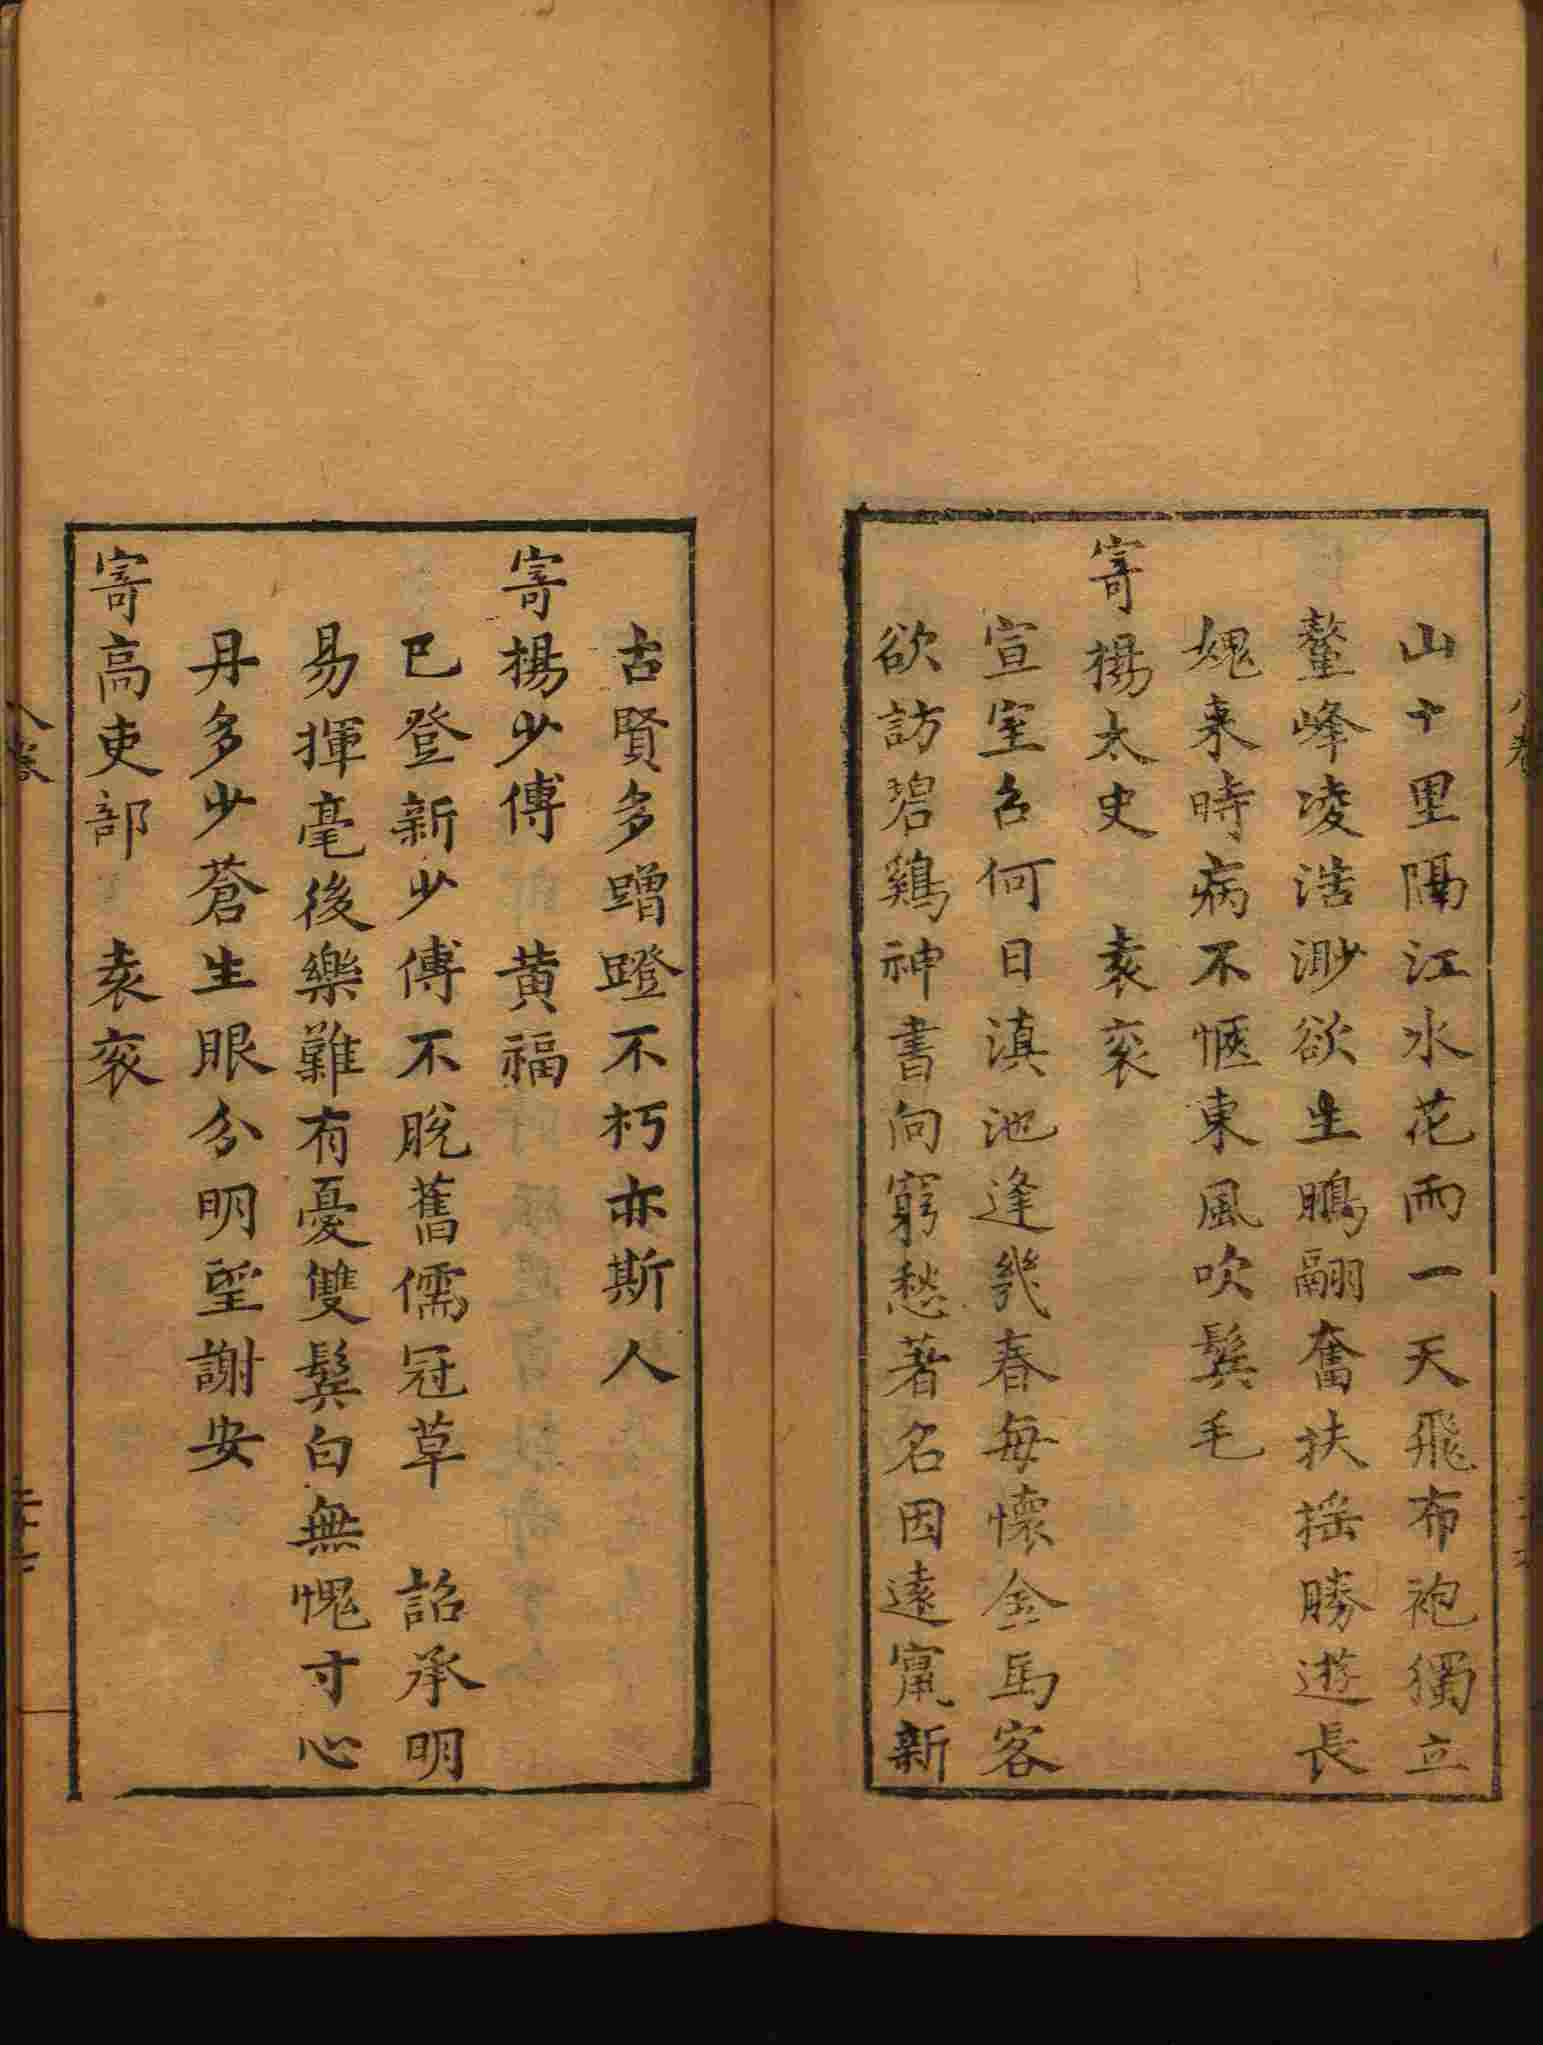 山十里隔江水花雨一天飛布袍獨立
鼇峰凌浩渺欲生鵬翮奮扶搖勝遊長
媿来時病不愜東風吹鬂毛
寄楊太史　袁袠
宣室召何日滇池逢幾春每懷金馬客
欲訪碧鷄神書向窮愁著名因遠竄新
古賢多蹭蹬不朽亦斯人
寄楊少傅　黄福
已登新少傅不脫舊儒冠草　詔承明
易揮毫後樂難有憂雙鬂白無愧寸心
丹多少蒼生眼分明望謝安
寄高吏部　袁袠
八卷